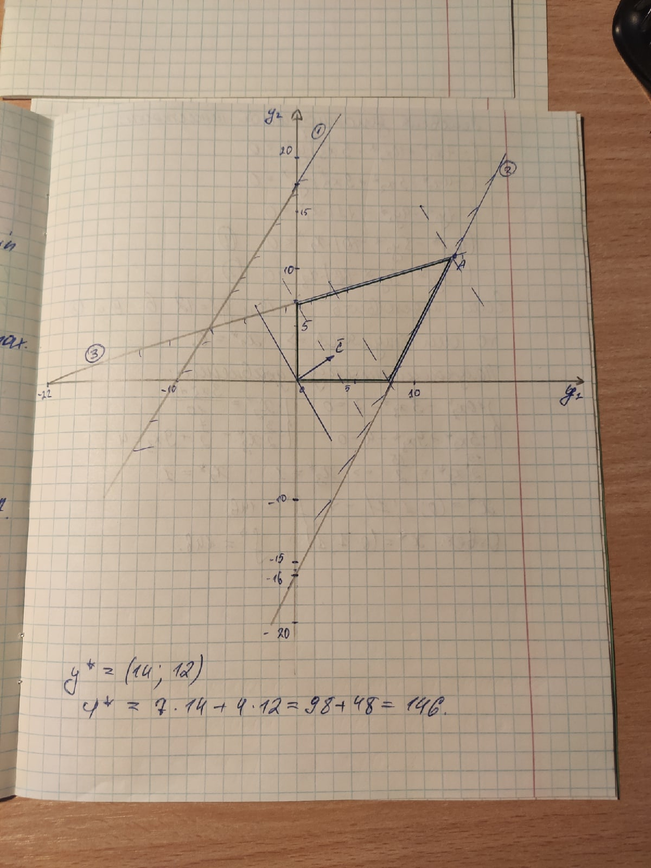 y₂
①
20
②
15
10
A
5
c̄
③
-22
-10
0
5
10
y₁
-10
-15
-16
-20
y* = (14; 12)
φ* = 7·14 + 4·12 = 98 + 48 = 146.